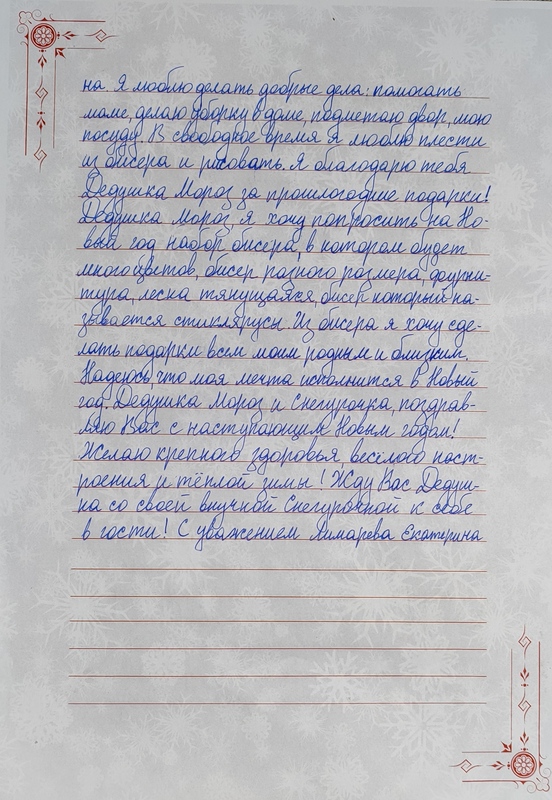 на. Я люблю делать добрые дела: помогать
маме, делаю уборку в доме, подметаю двор, мою
посуду. В свободное время я люблю плести
из бисера и рисовать. Я благодарю тебя
Дедушка Мороз за прошлогодние подарки!
Дедушка Мороз, я хочу попросить на Но-
вый год набор бисера, в котором будет
много цветов, бисер разного размера, фурни-
тура, леска тянущаяся, бисер который на-
зывается стиклярусы. Из бисера я хочу сде-
лать подарки всем моим родным и близким.
Надеюсь что моя мечта исполнится в Новый
год. Дедушка Мороз и Снегурочка, поздрав-
ляю Вас с наступающим Новым годом!
Желаю крепкого здоровья весёлого наст-
роения и тёплой зимы! Жду Вас Дедуш-
ка со своей внучкой Снегурочкой к себе
в гости! С уважением Лимарева Екатерина